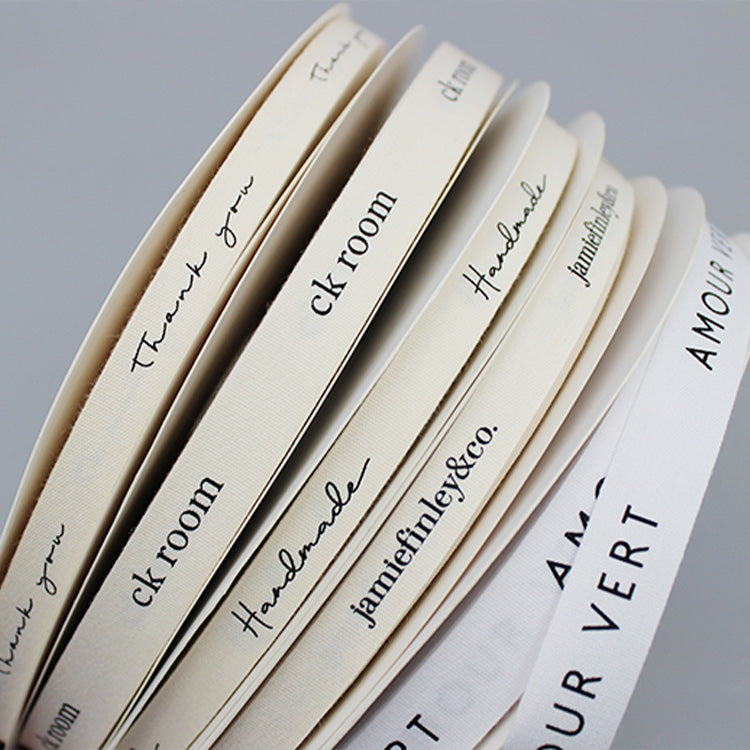 thank you
thank you
thank you
ck room
ck room
ck room
Handmade
Handmade
jamiefinley&co.
jamiefinley&co.
AMOUR VERT
AMOUR VERT